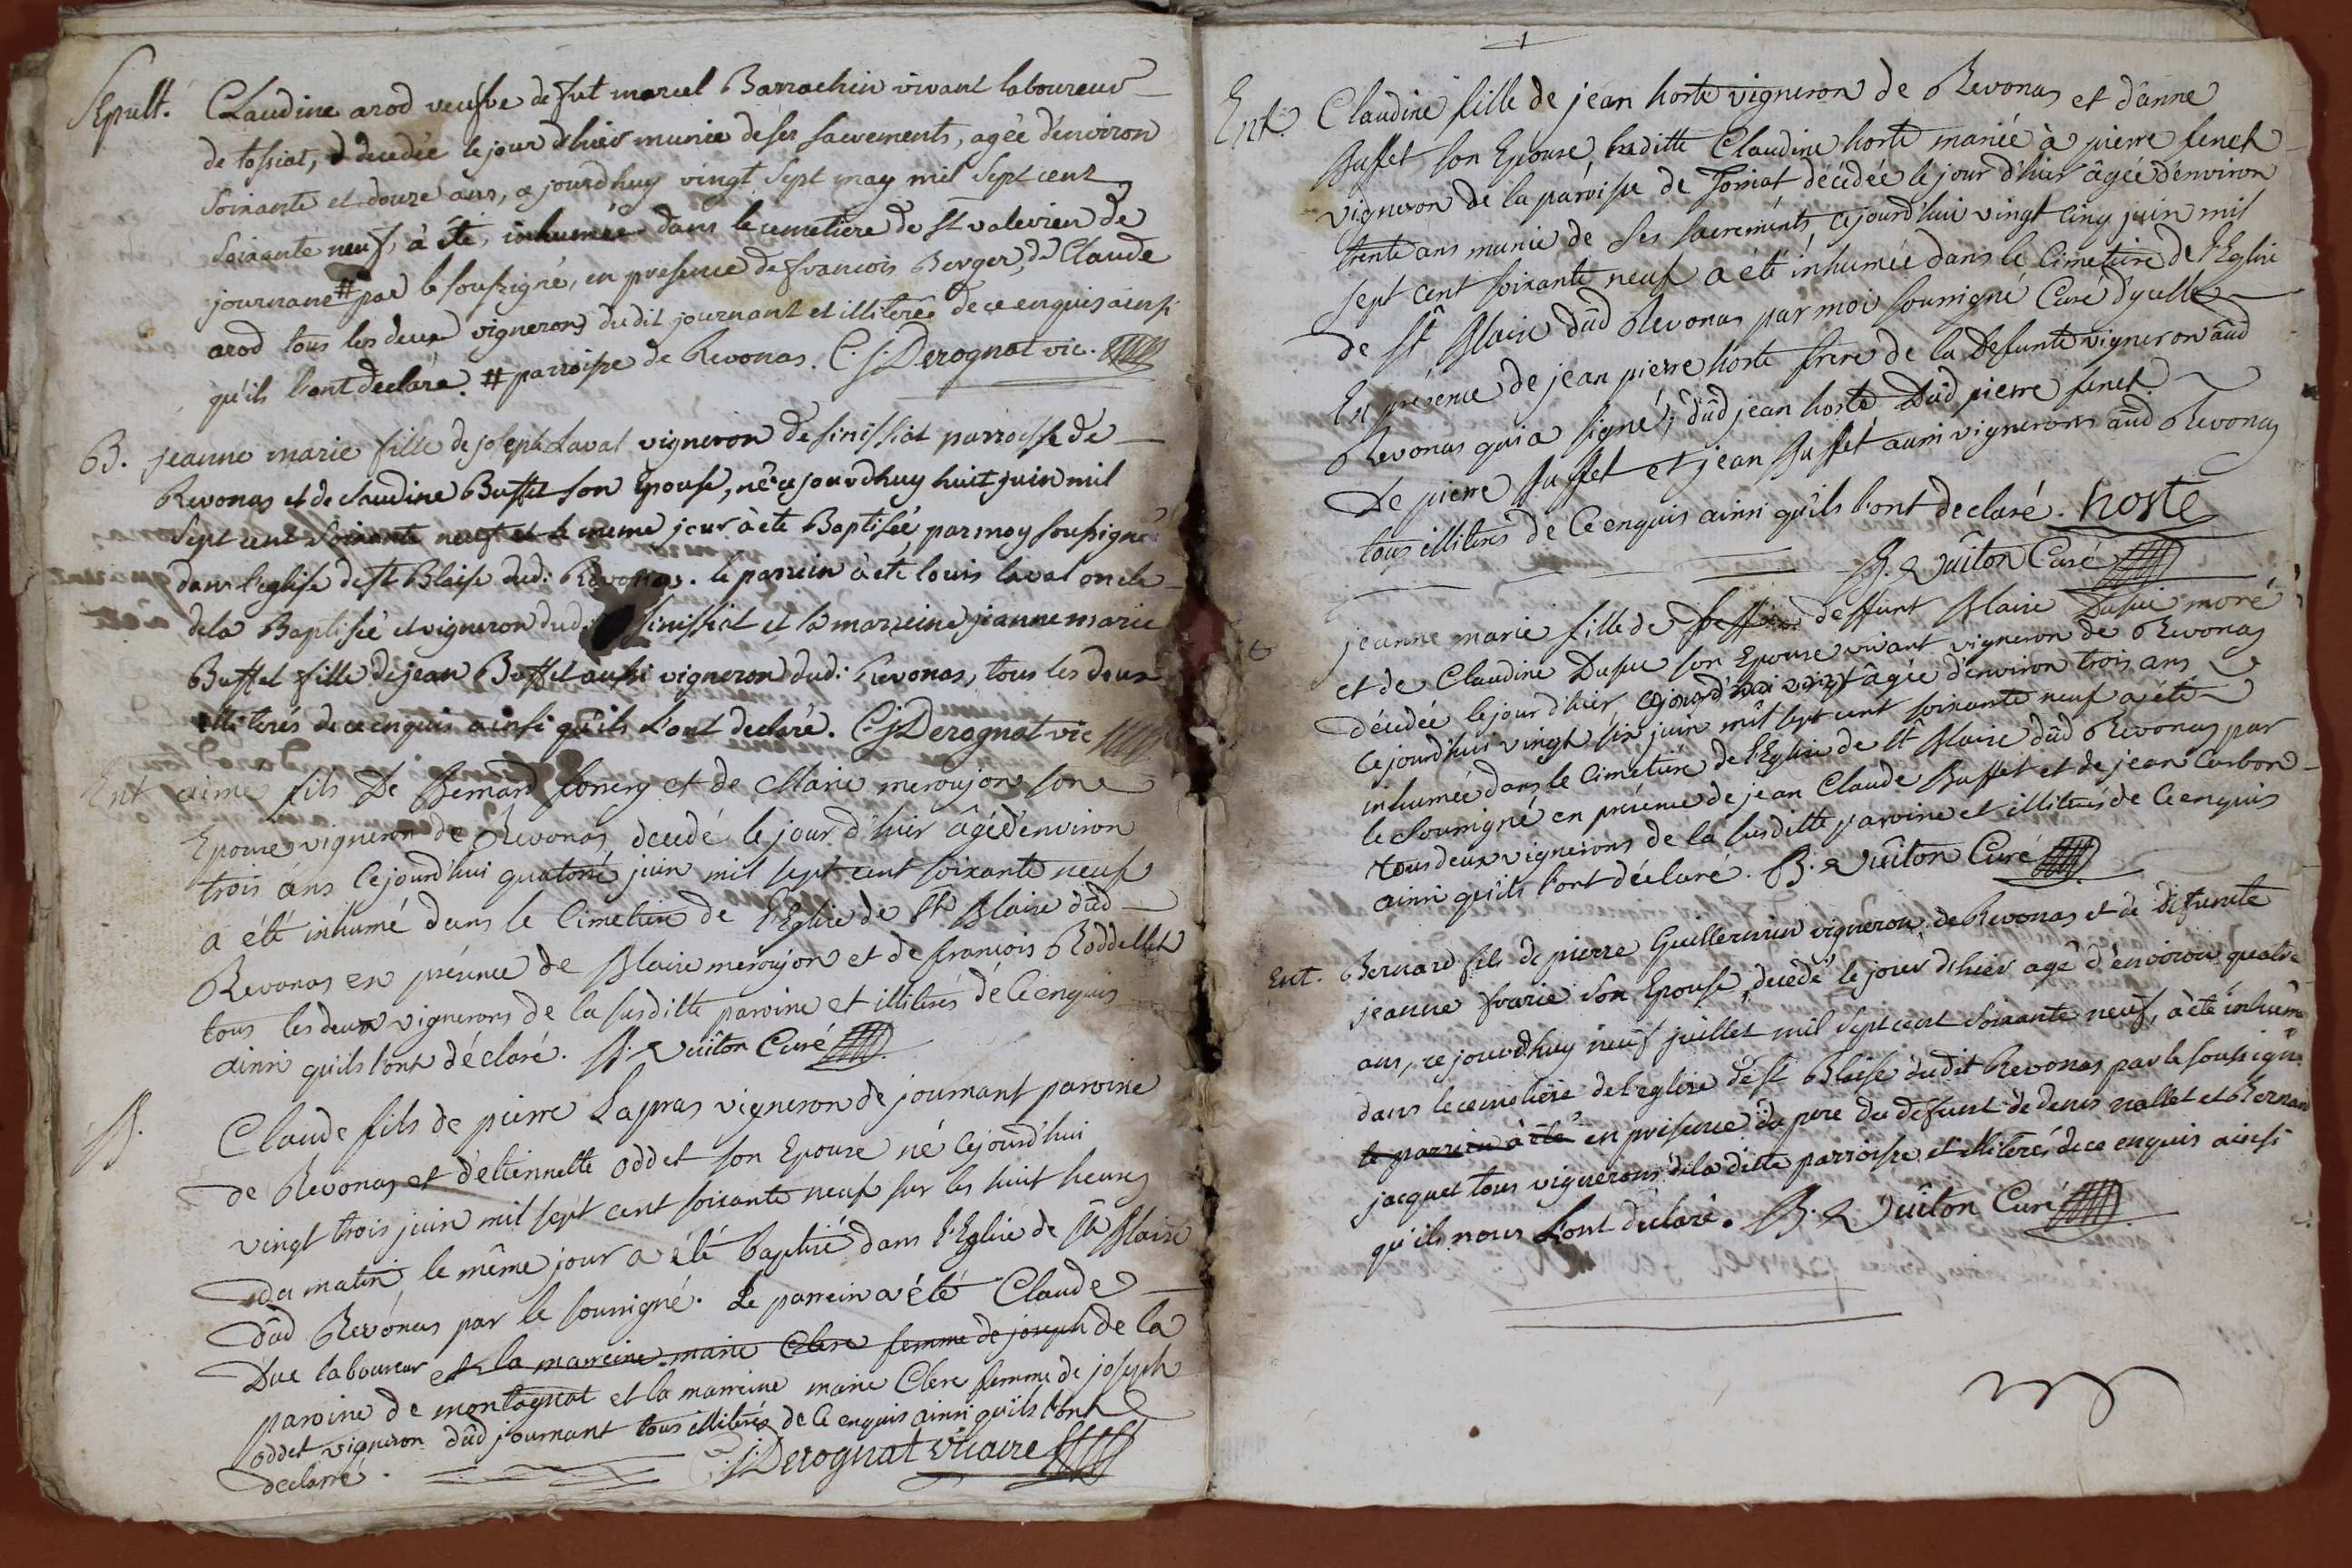 Sepult. Claudine arod veufve de fut marcel Barrachin vivant laboureur
de tossiat, decedée le jour d'hier munie de ses sacrements, agée d'environ
soixante et douze ans, ce jourdhuy vingt sept may mil sept cent
soixante neuf, à été, inhumée dans le cemetiere de st valerien de
journans # par le soussigné, en presence de francois Berger, de Claude
arod tous les deux vignerons dudit journant et illiterés de ce enquis ainsi
qu'ils l'ont declaré. # parroisse de Revonas. C. j. Derognat vic.
B. jeanne marie fille de joseph Laval vigneron de sinissiat parroisse de
Revonas et de claudine Buffet son Epouse, née ce jourdhuy huit juin mil
sept cent soixante neuf et le meme jour à ete Baptisée par moy soussigné
dans l'eglise de st Blaise dud: Revonas. le parrein à été louis laval oncle
de la Baptisée et vigneron dud: sinissiat et la marreine jeanne marie
Buffet fille de jean Buffet aussi vigneron dud: Revonas, tous les deux
illiterés de ce enquis ainsi qu'ils l'ont declaré. C. j. Derognat vic
Ent aimé fils De Bernard et de Marie meroujon son
Epouse vigneron de Revonas decedé le jour d'hier âgé d'environ
trois ans Cejourd'hui quatorze juin mil sept cent soixante neuf
a été inhumé dans le Cimetiere de l'Eglise de St Blaise dûd
Revonas en présence de Blaise meroujon et de francois Roddellet
tous les deux vignerons de la susditte paroisse et illiterés de Ce enquis
ainsi qu'ils l'ont déclaré. B. Vuiton Curé
B. Claude fils de pierre Lapras vigneron de journant paroisse
de Revonas et d'etiennette oddet son Epouse né Cejourd'hui
vingt trois juin mil sept cent soixante neuf sur les huit heures
du matin, le même jour a été baptisé dans l'Eglise de St Blaise
dûd Revonas par le soussigné. Le parrein a été Claude
Duc laboureur et la marreine marie Clere femme de joseph de la
paroisse de montagnat et la marreine marie Clere femme de joseph
oddet vigneron dûd journant tous illiterés de Ce enquis ainsi qu'ils l'ont
declarré. C. j. Derognat vicaire
Ent. Claudine fille de jean hoste vigneron de Revonas et d'anne
Buffet son Epouse, laditte Claudine hoste mariée à pierre fenet
vigneron de la paroisse de Tossiat décédée le jour d'hier âgée d'environ
trente ans munie de ses sacrements, cejourd'hui vingt cinq juin mil
sept cent soixante neuf a été inhumée dans le Cimetiere de l'Eglise
de St Blaise dûd Revonas par moi soussigné Curé d'yculle
En présence de jean pierre hoste frere de la Defunte vigneron aûd
Revonas qui a signé, dûd jean hoste Dûd pierre fenet
De pierre Buffet et jean Buffet aussi vignerons aûd Revonas
tous illiterés de Ce enquis ainsi qu'ils l'ont declaré. hoste
B. Vuiton Curé
jeanne marie fille de deffunt Blaise Dupui moré
et de Claudine Dupui son Epouse vivant vigneron de Revonas
décedée le jour d'hier, cejourd'hui vingt âgée d'environ trois ans
Cejourd'hui vingt six juin mil sept cent soixante neuf a été
inhumée dans le Cimetiere de l'Eglise de St Blaise dûd Revonas par
le Soussigné en présence de jean Claude Buffet et de jean Carbon
tous deux vignerons de la susditte paroisse et illiterés de Ce enquis
ainsi qu'ils l'ont déclaré. B. Vuiton Curé
Ent. Bernard fils de pierre Guillermin vigneron de Revonas et de defuncte
jeanne son Epouse, decedé le jour d'hier agé d'environ quatre
ans, ce jourdhuy neuf juillet mil sept cent soixante neuf, à été inhumé
dans le cemetiere de l'eglise de st Blaise dudit Revonas par le soussigné
le parrein à été en presence du pere du defunt de denis nallet et Bernard
jacquet tous vignerons de la ditte parroisse et illiterés de ce enquis ainsi
qu'ils nous l'ont déclaré. B. Vuiton Curé